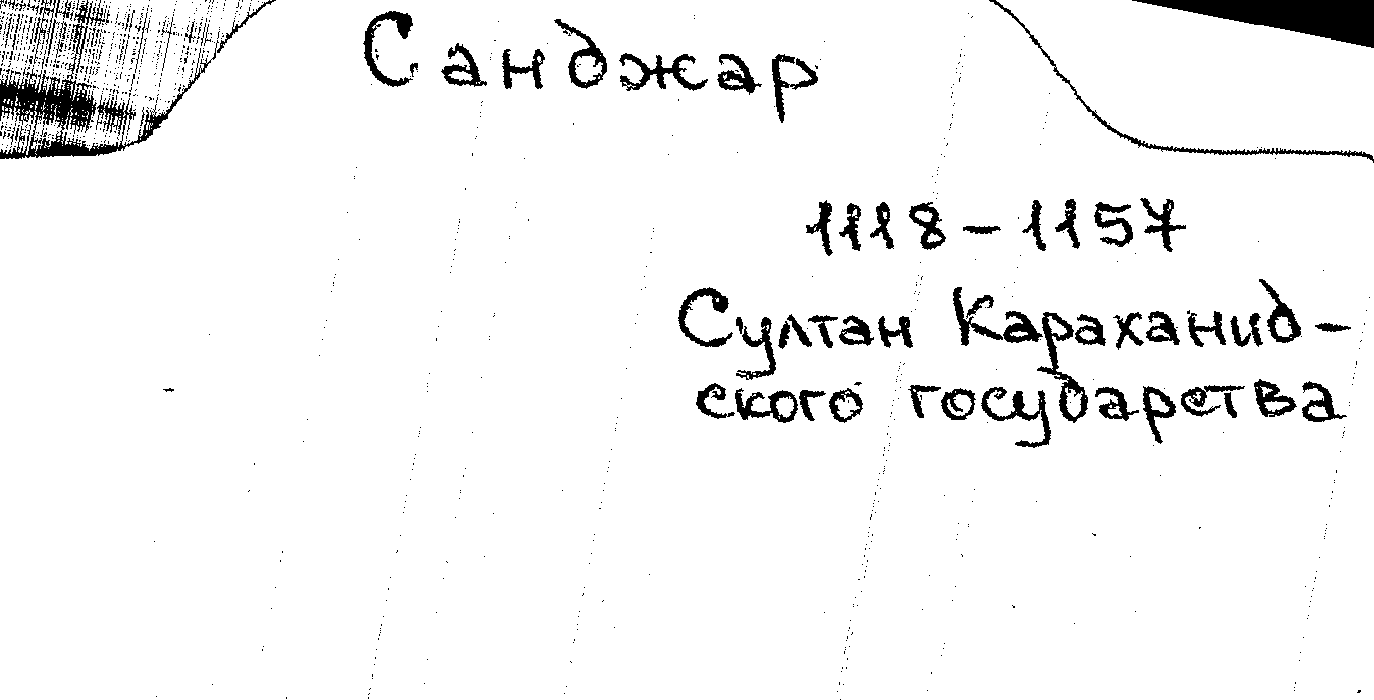 Санджар
1118-1157
Султан Караханид-
ского государства